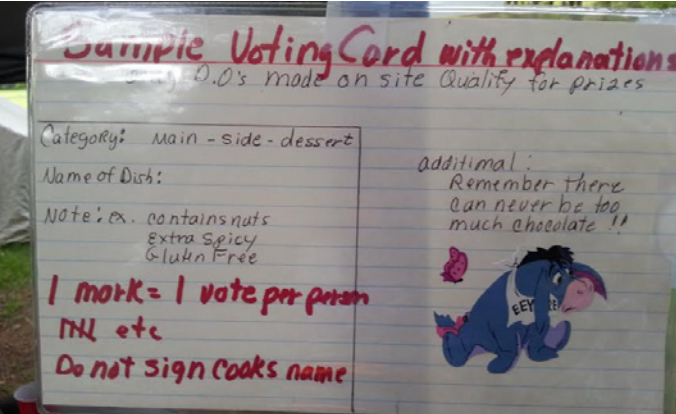 Sample Voting Card with explanations
D.O's made on site Quality for prizes
Category: Main - side - dessert
Name of Dish:
Note: ex. contains nuts
Extra Spicy
Gluten Free
1 mark = 1 vote per person
etc
Do not sign Cooks name
additional:
Remember there
can never be too
much chocolate !!
EEY RE